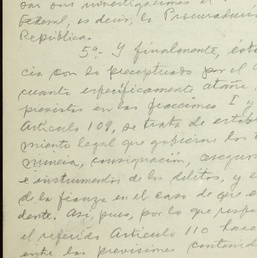 sus investigaciones el
Federal, es decir, la Procuraduría
República.
5º- Y finalmente, ésta
cia con lo preceptuado por el
cuanto específicamente atañe
previstos en las fracciones I y
Artículo 109, se trata de estab
miento legal que
nuncia, consignación, asegura
e instrumentos de los delitos, y
de la fianza en el caso de que
dente. Así, pues, por lo que respe
el referido Artículo 110 hace
entre las previsiones contenid